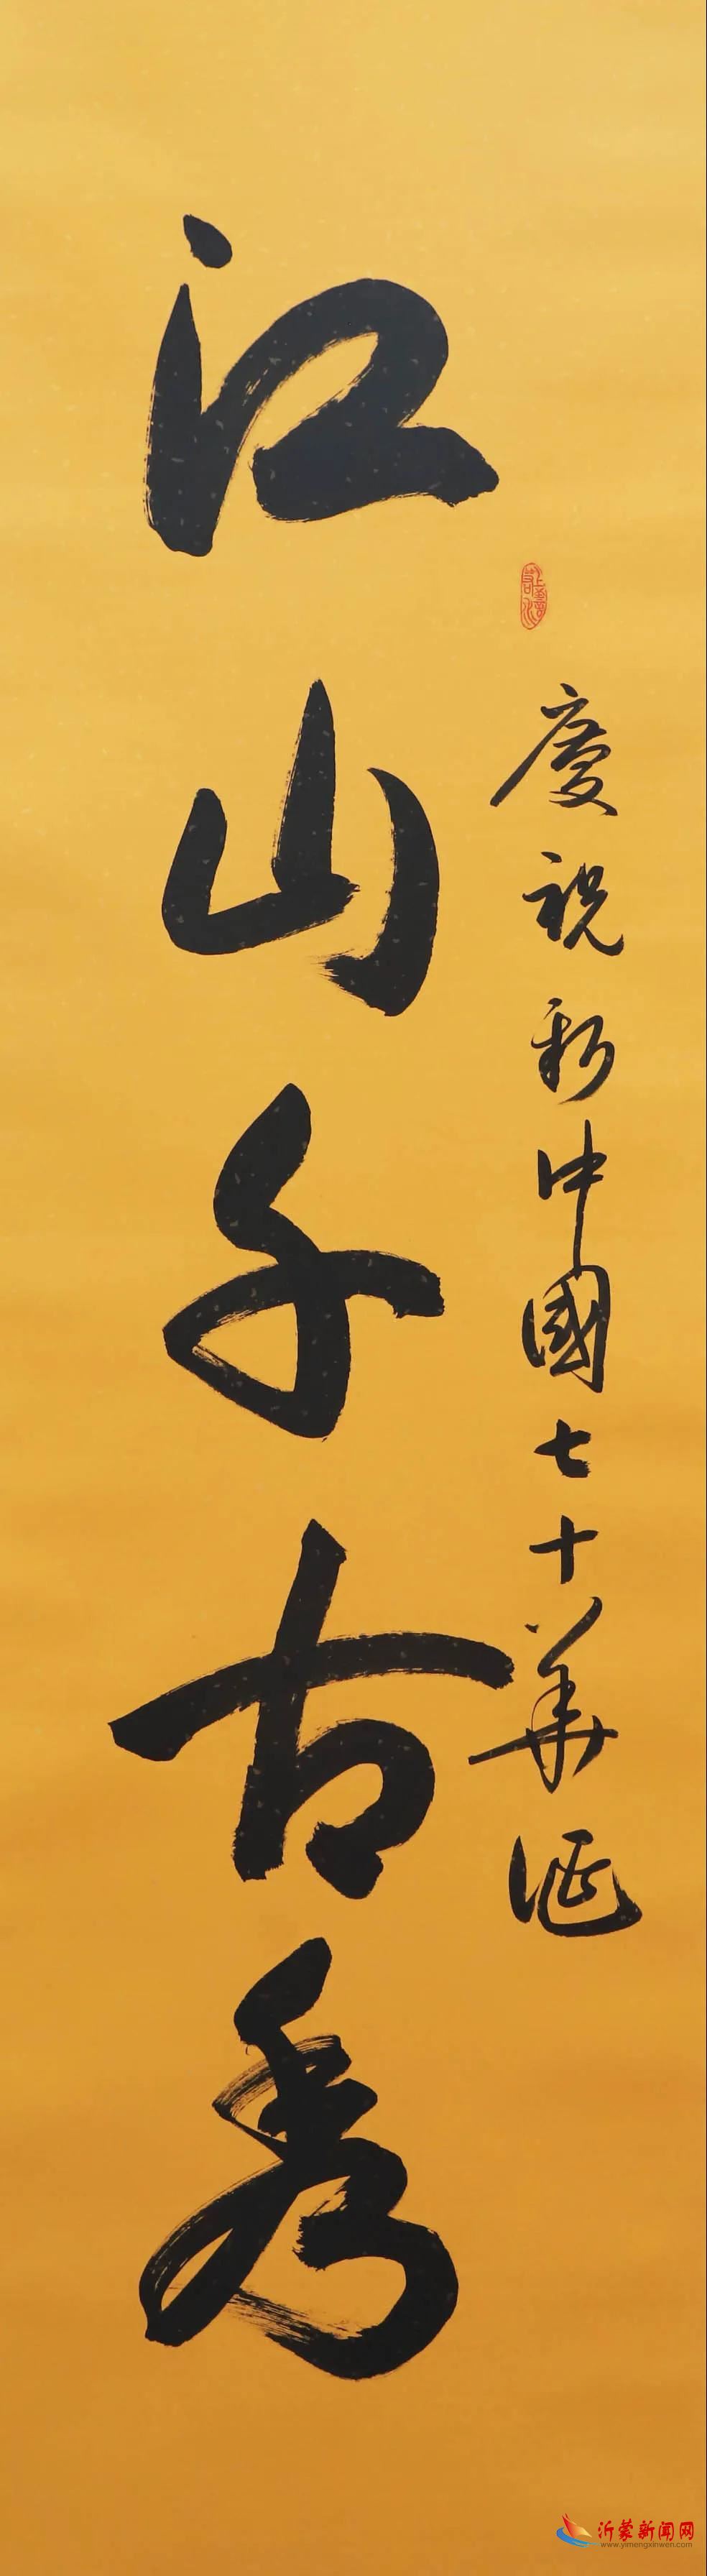 上善若水
慶祝新中國七十華誕
江山千古秀
沂蒙新闻网
www.yimengxinwen.com